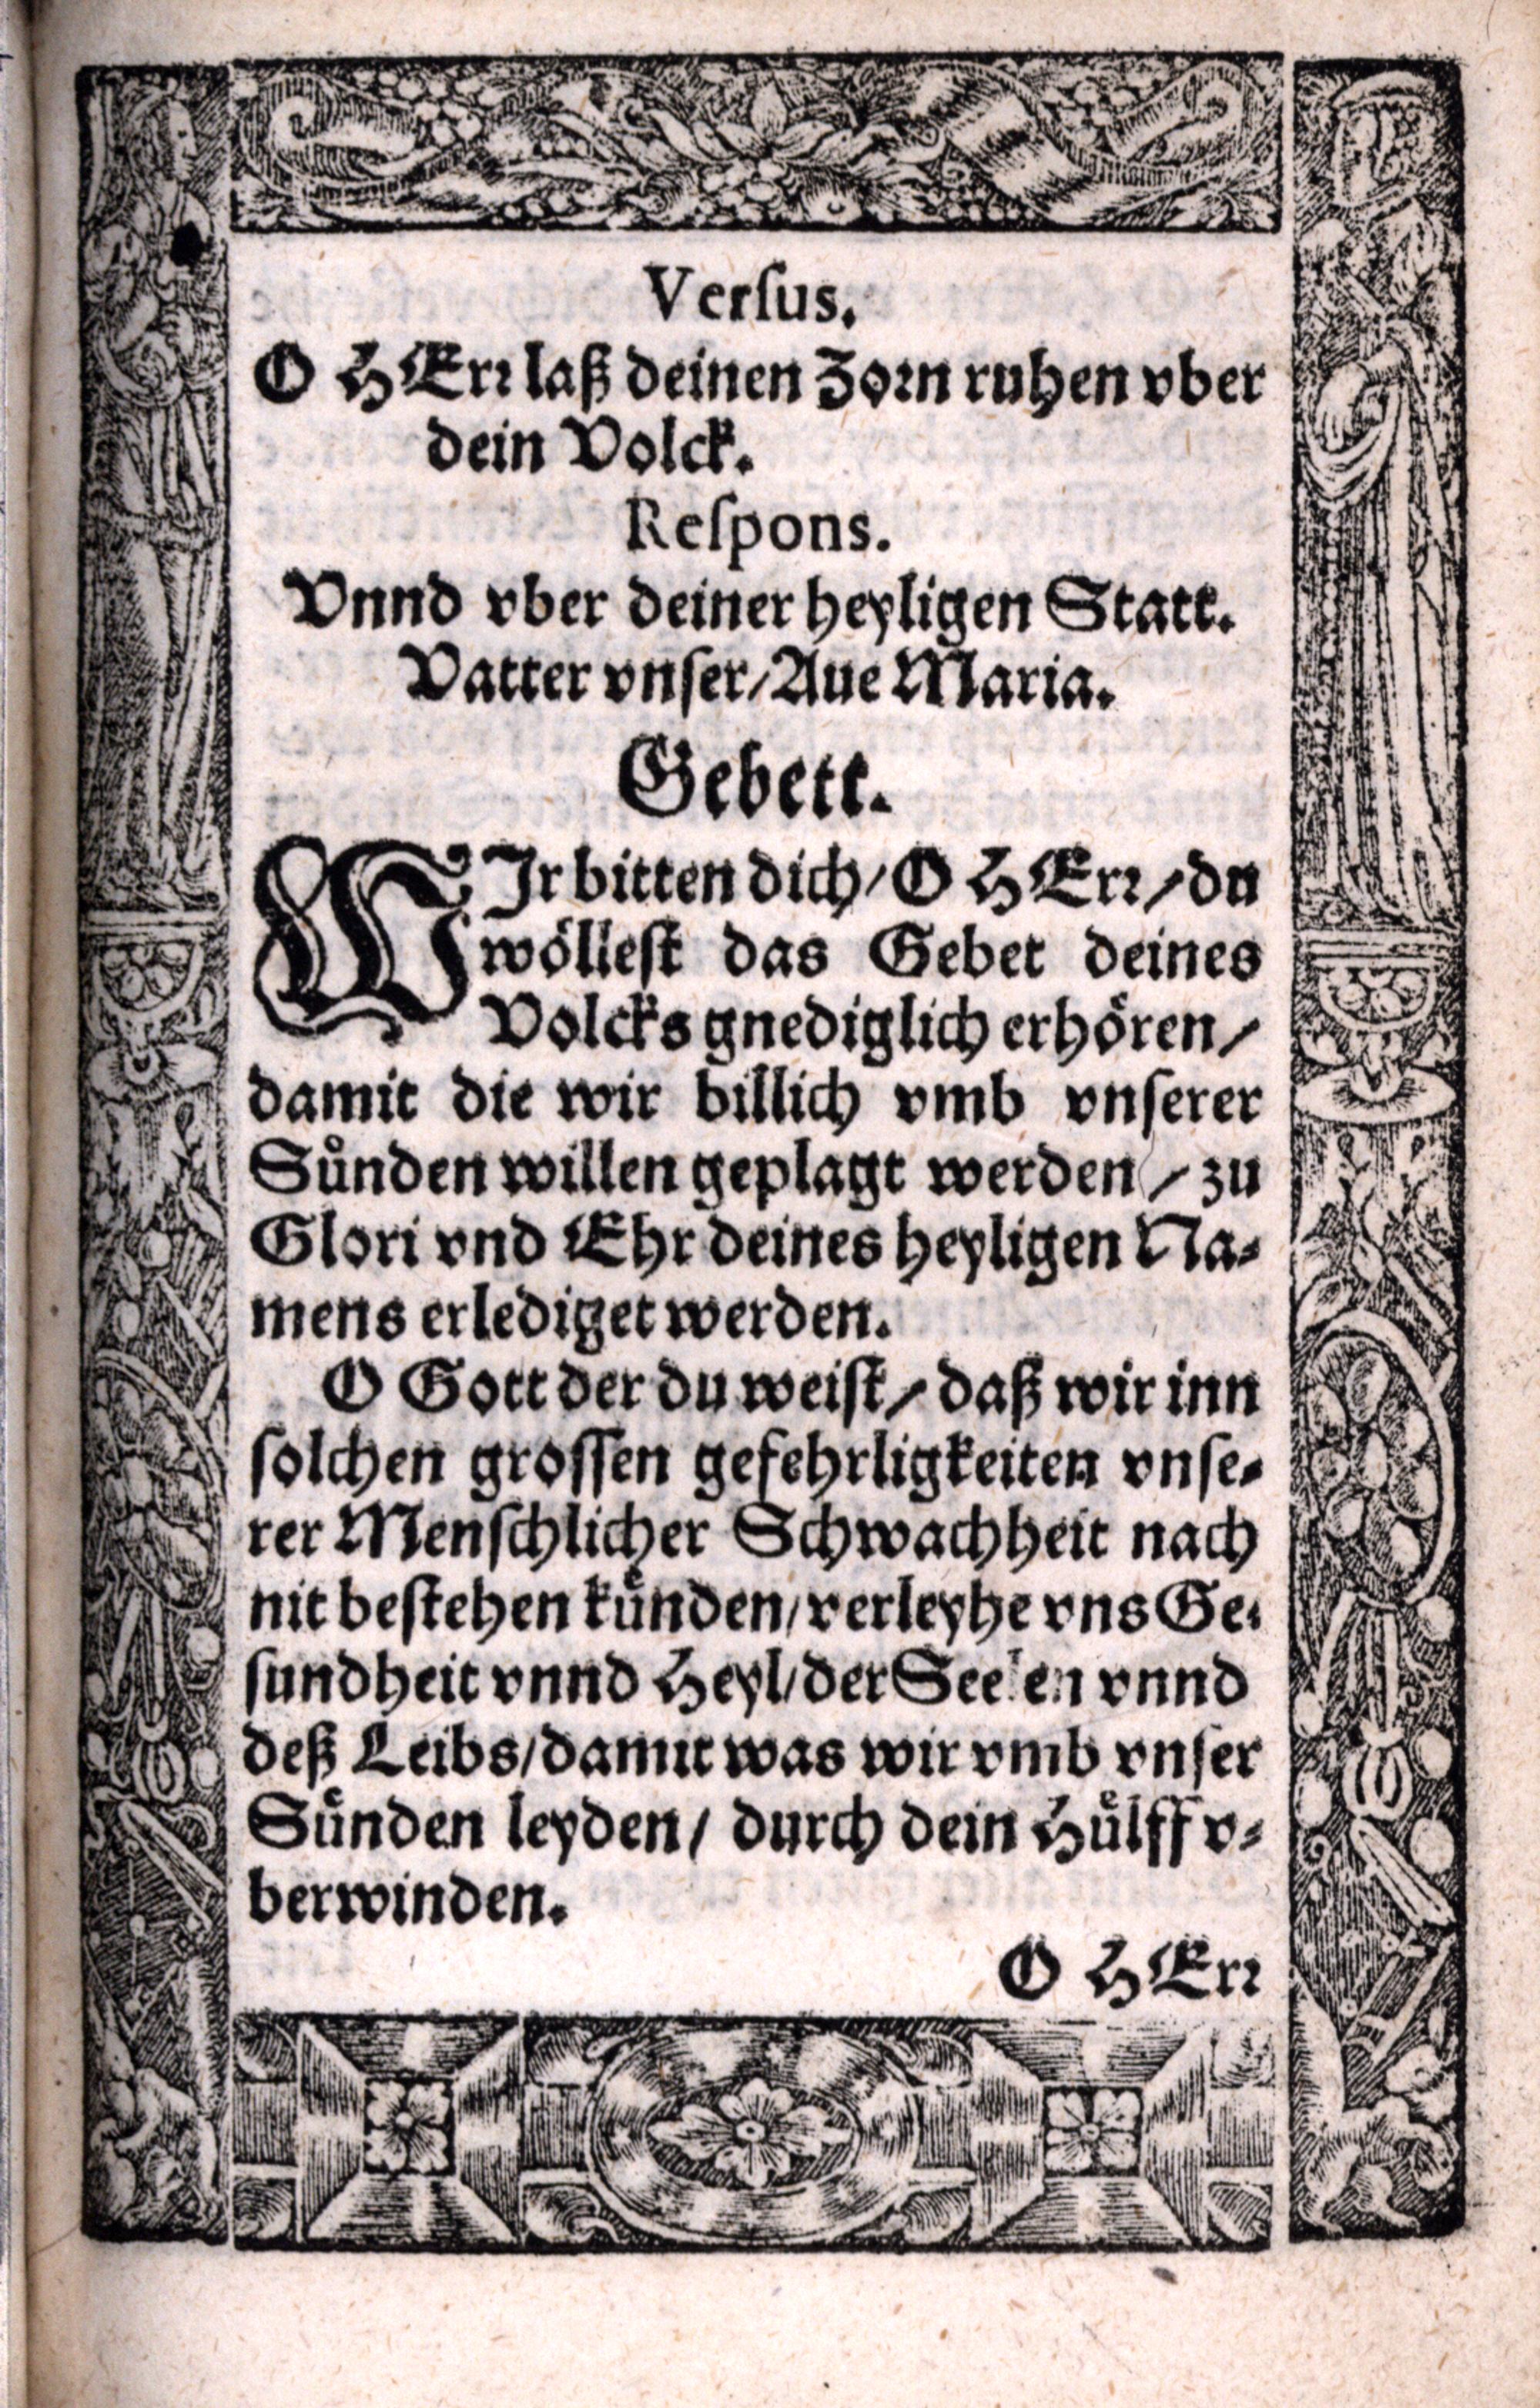 Verſus.
O HErr laß deinen Zorn ruhen vber
dein Volck.
Reſpons.
Vnnd vber deiner heyligen Statt.
Vatter vnſer/Aue Maria.
Gebett.
WIr bitten dich/O HErr/du
wöllest das Gebet deines
Volcks gnediglich erhören/
damit die wir billich vmb vnſerer
Sůnden willen geplagt werden/zu
Glori vnd Ehr deines heyligen Na⸗
mens erlediget werden.
O Gott der du weiſt/daß wir inn
ſolchen groſſen gefehrligkeiten vnſe⸗
rer Menſchlicher Schwachheit nach
nit beſtehen kůnden/verleyhe vns Ge⸗
ſundheit vnnd Heyl/der Seelen vnnd
deß Leibs/damit was wir vmb vnſer
Sůnden leyden/durch dein Hůlff v⸗
berwinden.
O HErr